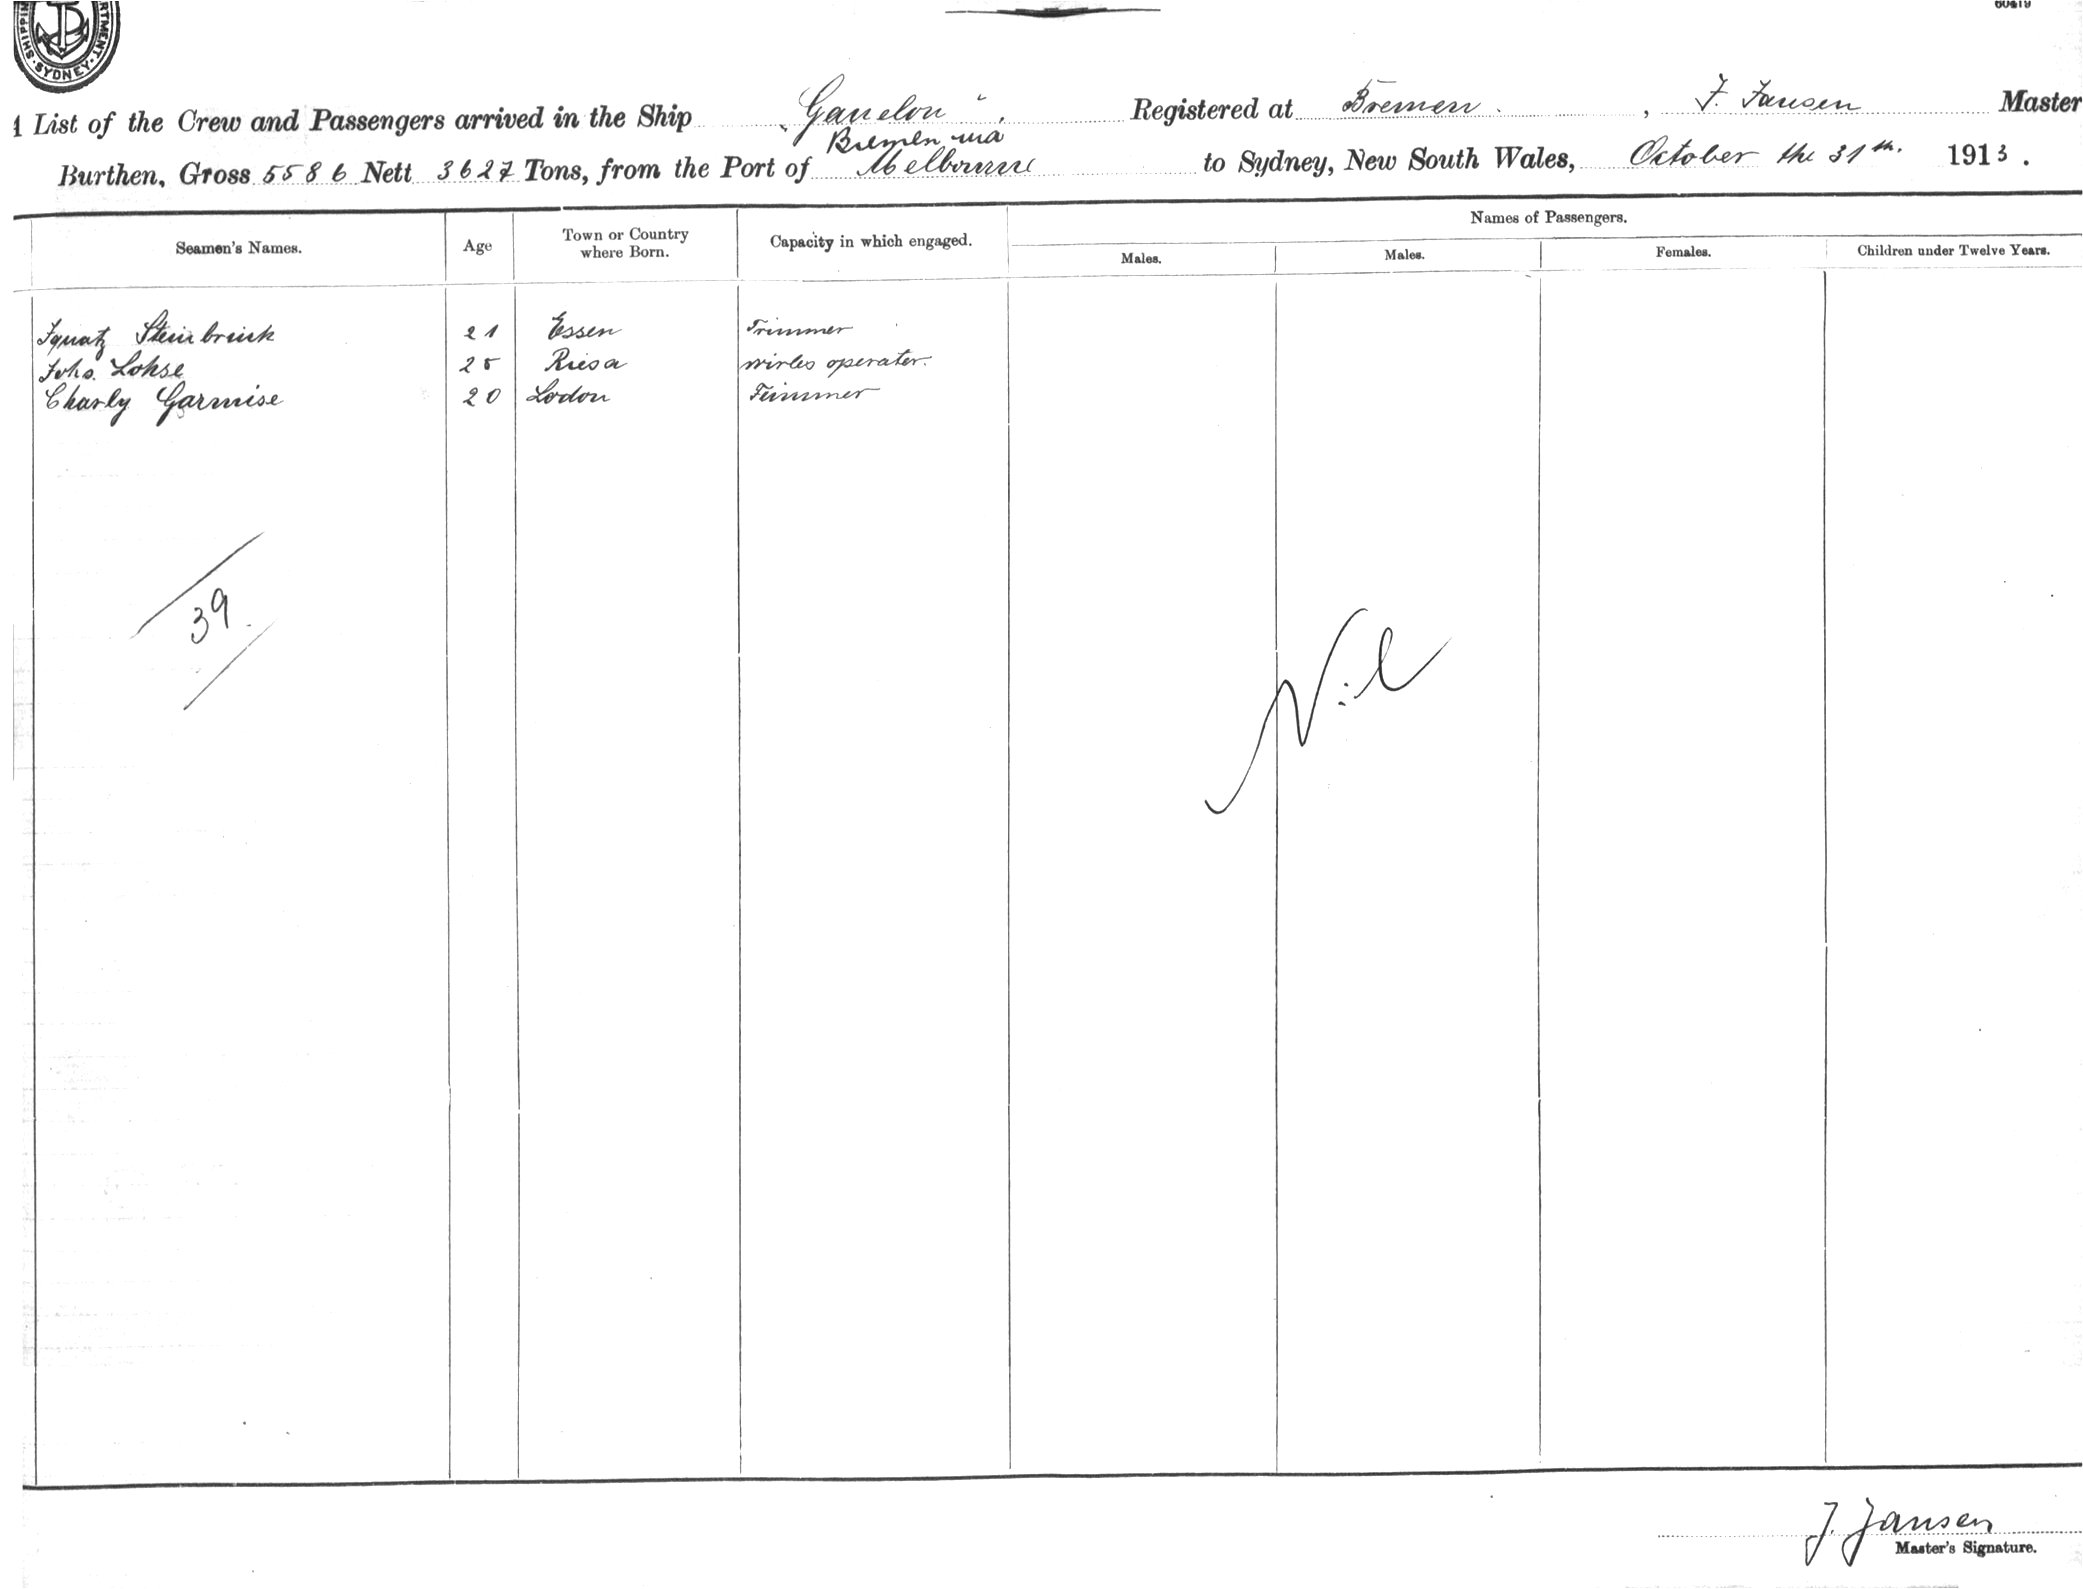 SHIPPIN RTMENT SYDNEY
60419
A List of the Crew and Passengers arrived in the Ship "Ganelon". Registered at Bremen. , J. Jansen Master
Bremen via
Burthen, Gross 5586 Nett 3627 Tons, from the Port of Melbourne to Sydney, New South Wales, October the 31th. 1913.
Names of Passengers.
Seamen's Names. Age Town or Country where Born. Capacity in which engaged. Males. Males. Females. Children under Twelve Years.
Ignatz Steinbrink 21 Essen Trimmer
Johs. Lohse 25 Riesa wirles operater.
Charly Garmise 20 Lodon Trimmer
39
Nil
J. Jansen
Master's Signature.